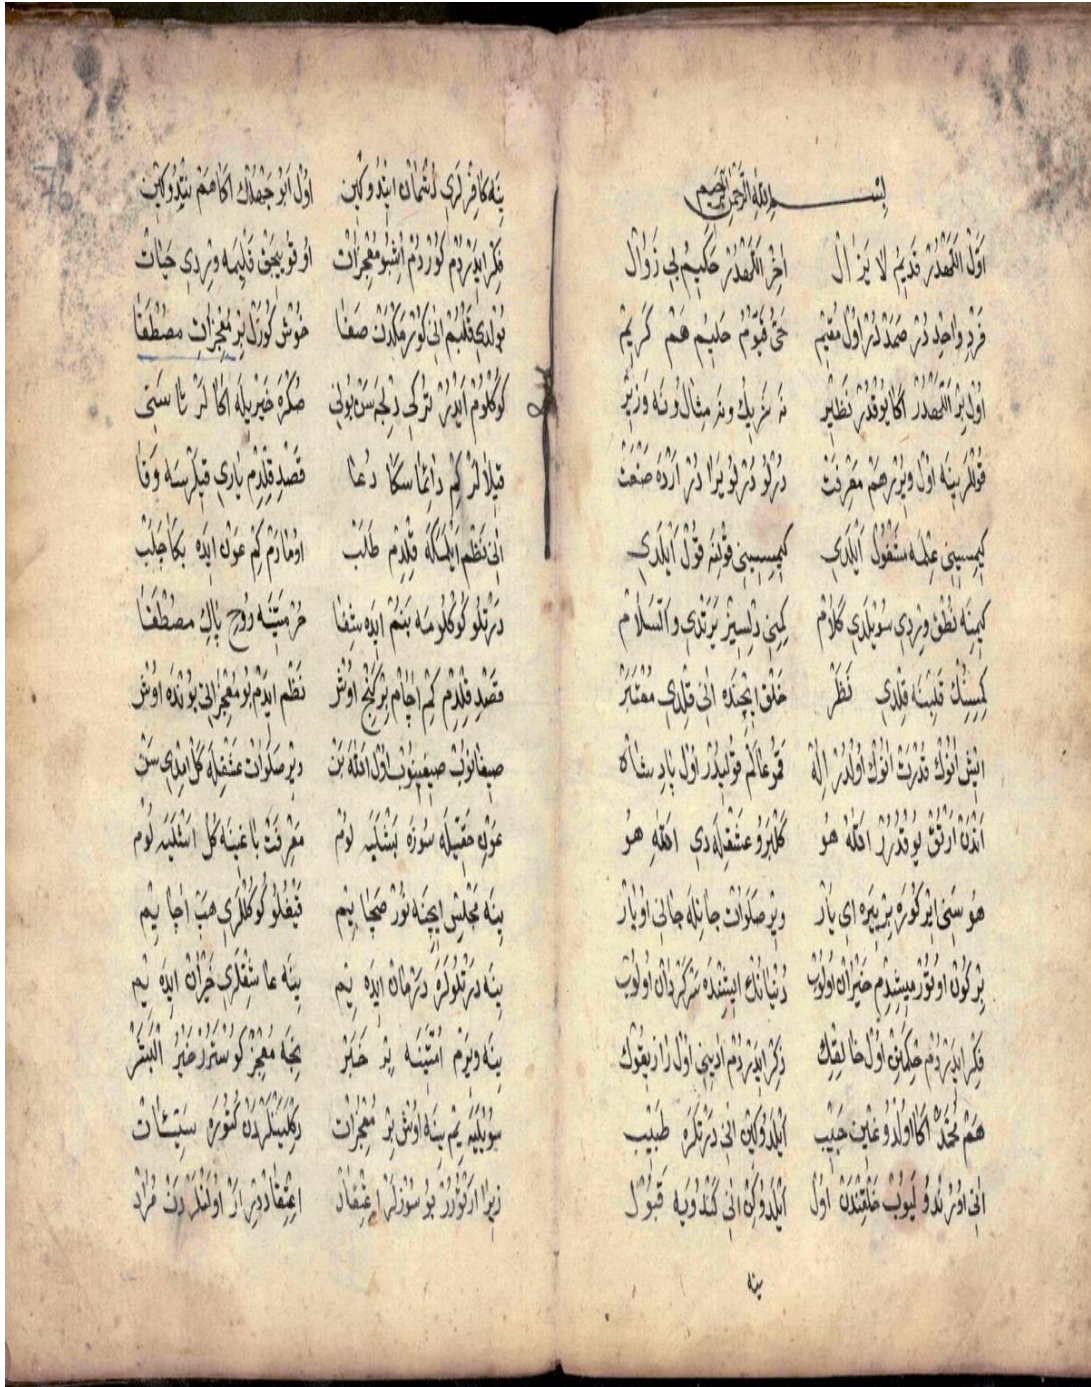 بسم الله الرحمن الرحيم
اَوَّلْ اللّٰهدُرْ قَدِيمُ لَا يَزَالْ اٰخِرْ اللّٰهدُرْ حَكِيمُ بِي زَوَالْ
فَرْدِ وَاحِدْ دُرْ صَمَدْ دُرْ اُولْ مُقِيمْ حَيُّ قَيُّومُ حَلِيمْ هَمْ كَرِيمْ
اُولْ بِرْ اللّٰهدُرْ اَكَا يُوقْدُرْ نَظِيرْ نَه شَرِيكْ و نَه مِثَالْ و نَه وَزِيرْ
قُوللَرِينَه اُولْ وِيرُرْ هَمْ مَعْرِفَتْ دُرْلُو دُرْلُو يَرَادُرْ اَرْدَه صَنْعَتْ
كِيمِسِينِي عِلْمَه مَشْغُولْ اَيْلَدِي كِيمِسِينِي قُولِنَه قُولْ اَيْلَدِي
كِيمِنَه نُطْقْ وِرْدِي سُويْلَدِي كَلَامْ كِمِنِي دِلْسِيزْ يَرَتْدِي وَالسَّلَامْ
كِمِسِنُكْ قَلْبِنَه قِلْدِي نَظَرْ خَلْقْ اِيچِنْدَه اَنِي قِلْدِي مُعْتَبَرْ
اِيشْ اَنُوكْ قُدْرَتْ اَنُوكْ اُولْدُرْ اِلٰهْ قَمُو عَالَمْ قُولِيدُرْ اُولْ پَادِشَاهْ
اَنْدَنْ اَرْتُقْ يُوقْدُرُرْ اللّٰه هُو كَلْبَرُو عَشْقِلَه دِي اللّٰه هُو
هُو سَنِي اِيرْ كُورَه بِرْ پِيرَه اَي يَارْ وِيرْ صَلَوَاتْ جَانِلَه جَانِي اُويَارْ
بِرْ كُونْ اُوتُورْمِشِدِمْ حَيْرَانْ اُولُوبْ دُنْيَانُكْ اِيشِنْدَه سَرْكَرْدَانْ اُولُوبْ
فِكْرْ اِيدَرْدُمْ حِكْمَتِنْ اُولْ خَالِقِكْ ذِكْرْ اِيدَرْدُمْ اَدِينِي اُولْ رَازِقُوكْ
هَمْ مُحَمَّدْ اَكَا اُولْدُوغِينْ حَبِيبْ اَيْلَدُوكِنْ اَنِي دَرْتلَرَه طَبِيبْ
اَنِي اُورُنْدُو لَيُوبْ خَلْقِنْدَنْ اُولْ اَيْلَدُوكِنْ اَنِي كَنْدُويَه قَبُولْ
يِنَه
يِنَه كَافِرْلَرِي دُشْمَانْ اِيتْدُوكِينْ اُولْ اَبُو جَهْلُكْ اَكَا هَمْ نِتْدُوكِينْ
فِكْرْ اِيدَرْدُمْ كُورْدُمْ اُشْبُو مُعْجِزَاتْ اُوقُويِيجَقْ قَلْبِمَه وِرْدِي حَيَاتْ
بُولْدِي قَلْبُمْ اَنِي كُورْمَكْدَنْ صَفَا خُوشْ كُوزَلْ بِرْ مُعْجِزَاتِ مُصْطَفَا
كُوكْلُومْ اَيْدُرْ تُركِي دِلْجَه سَنْ بُونِي صُكْرَه خَيْرِيلَه اَكَالَرْ تَا سَنِي
قِيلَالَرْ كِمْ دَائِمَا سَكَا دُعَا قَصْدِ قِلْدِمْ يَارِي قِيلَرْسَه وَفَا
اَنِي نَظْمْ اَيْلَمَكَه قِلْدِمْ طَلَبْ اُومَارَمْ كِمْ عَوْنْ اِيدَه بَكَا چَلَبْ
دَرْتلُو كُوكْلُومَه بَنُمْ اِيدَه شِفَا حُرْمَتِينَه رُوحِ پَاكِ مُصْطَفَا
قَصْدِ قِلْدِمْ كِمْ اَچَامْ بِرْ كَنْجْ اُوشْ نَظْمْ اِيدَمْ بُو مُعْجِزَاتِي بُونْدَه اُوشْ
صِيغَانُوبْ صِيغِينُوبْ اُولْ اللّٰهَه بَنْ وِيرْ صَلَوَاتْ عَشْقِلَه كَلْ اِمْدِي سَنْ
عَوْنِ حَقِّيلَه سُوزَه بَشْلَيَه لُومْ مَعْرِفَتْ بَاغِينَه كَلْ اِشْلَيَه لُومْ
يِنَه مَجْلِسْ اِيچِنَه نُورْ صَچَا يِمْ قَيْغُلُو كُوكُلْلَرِي هَپْ اَچَا يِمْ
يِنَه دَرْتْلُولَرَه دَرْمَانْ اِيدَه يِمْ يِنَه عَاشِقْلَرِي حَيْرَانْ اِيدَه يِمْ
يِنَه وِيرَمْ اُمَّتِينَه بِرْ خَبَرْ نِيجَه مُعْجِزْ كُوسْتَرُرْ خَيْرُ الْبَشَرْ
سُويْلَيَه يِمْ يِنَه اُوشْ بِرْ مُعْجِزَاتْ دِكْلَيَنْلَرْدَنْ كُتُورَه سَيِّئَاتْ
زِيرَا اَرْتُورُرْ بُو سُوزْلَرْ اِعْتِقَادْ اِعْتِقَاددِرْ اَرْ اُولَنْلَرْدَنْ مُرَادْ
76